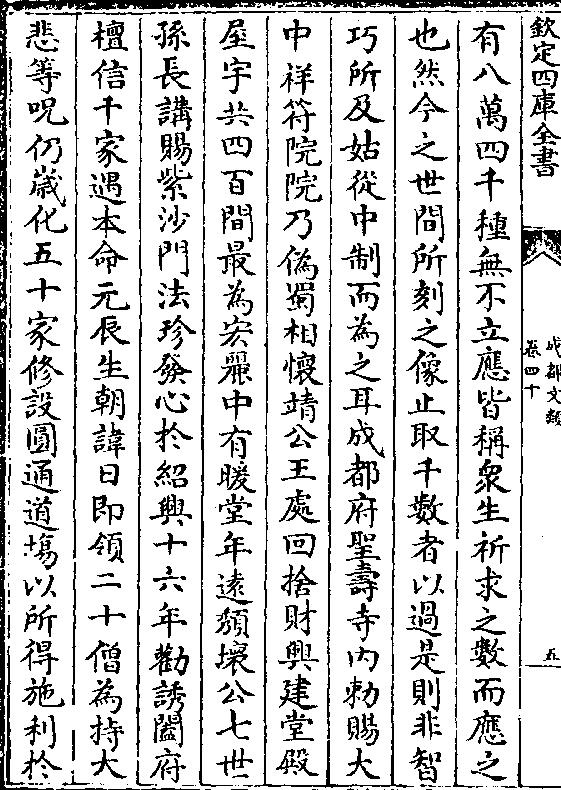 欽定四庫全書
成都文類
卷四十
五
有八萬四千種無不立應皆稱衆生祈求之數而應之
也然今之世間所刻之像止取千數者以過是則非智
巧所及姑從中制而為之耳成都府聖壽寺内勅賜大
中祥符院院乃偽蜀相懷靖公王處回捨財興建堂殿
屋宇共四百間最為宏麗中有暖堂年遠頽壞公七世
孫長講賜紫沙門法珍發心於紹興十六年勸誘闔府
檀信千家遇本命元辰生朝諱日即領二十僧為持大
悲等呪仍歲化五十家修設圓通道塲以所得施利於